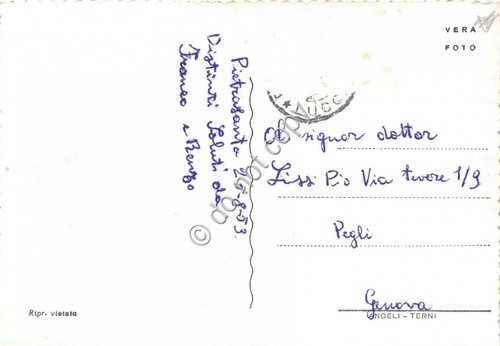 VERA
FOTO
Pietrasanta 25-8-53.
Distinti Saluti da
Franco e Renzo
Al signor dottor
Lissi Pio Via tevere 1/9
Pegli
Genova
ANGELI - TERNI
Ripr. vietata
© do not copy